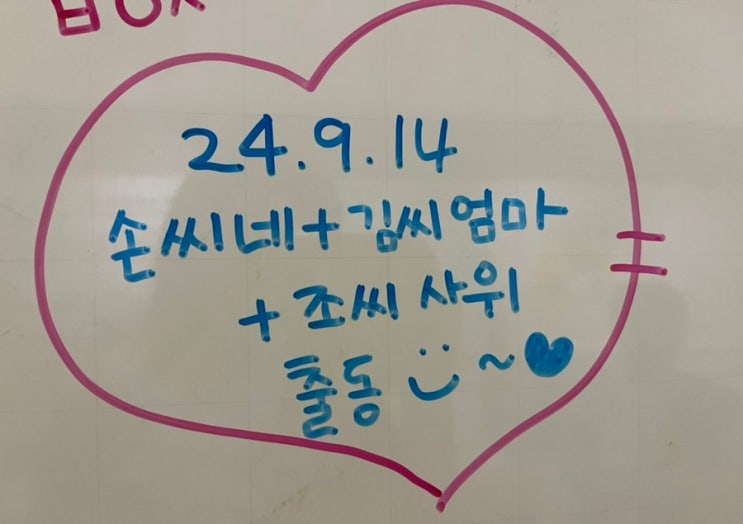 24.9.14
손씨네+김씨엄마
+ 조씨 사위
출동 ~